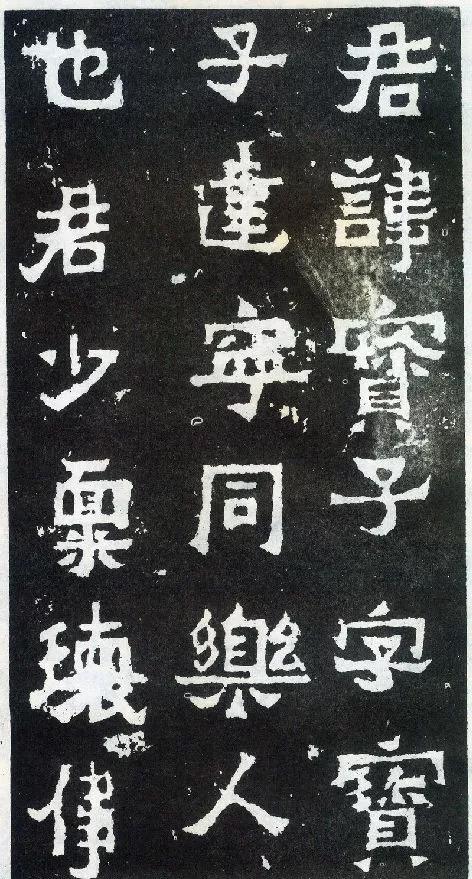 君諱寳子字寳
子建寧同樂人
也君少稟瓌偉